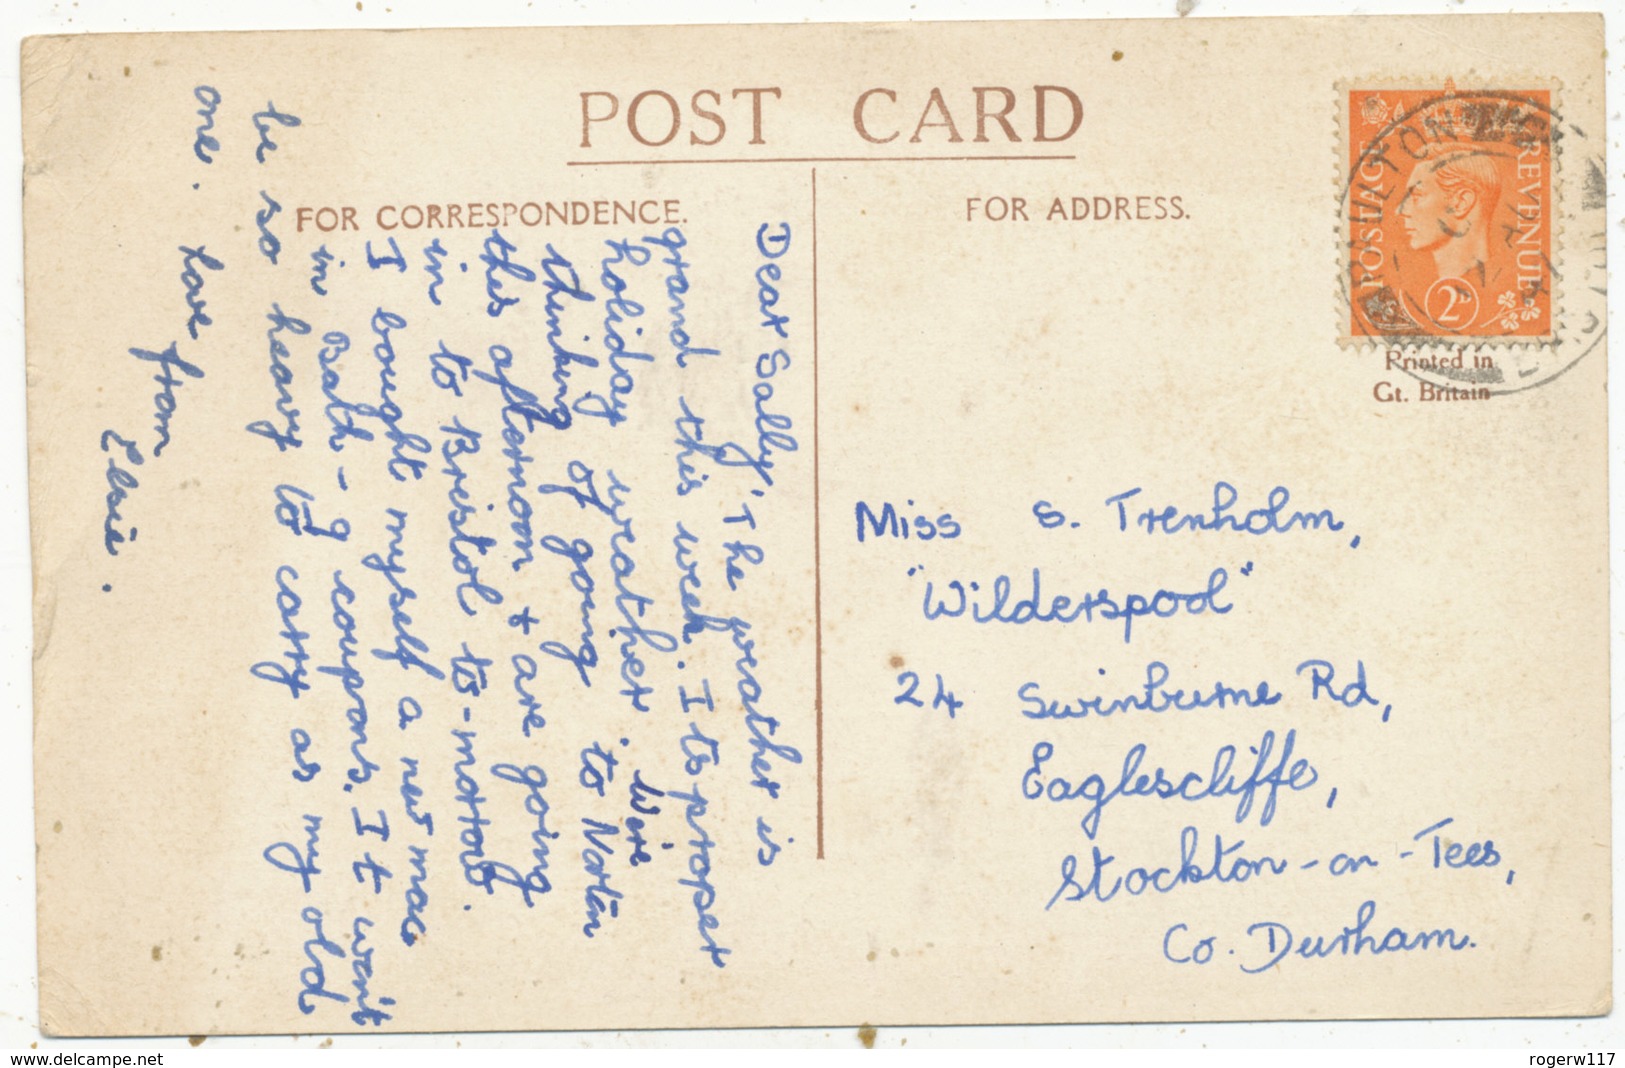 POST CARD
FOR CORRESPONDENCE.
FOR ADDRESS.
Dear Sally, The weather is
grand this week. Its proper
holiday weather. We're
thinking of going to Norton
this afternoon & are going
in to Bristol to-morrow.
I bought myself a new mac
in Bath - 9 coupons. It won't
be so heavy to carry as my old
one. Love from
Elsie.
POSTAGE
REVENUE
2D
PAULTON
Printed in
Gt. Britain
Miss S. Trenholm,
"Wilderspool"
24 Swinburne Rd,
Eaglescliffe,
Stockton-on-Tees,
Co. Durham.
delcampe.net
rogerw117